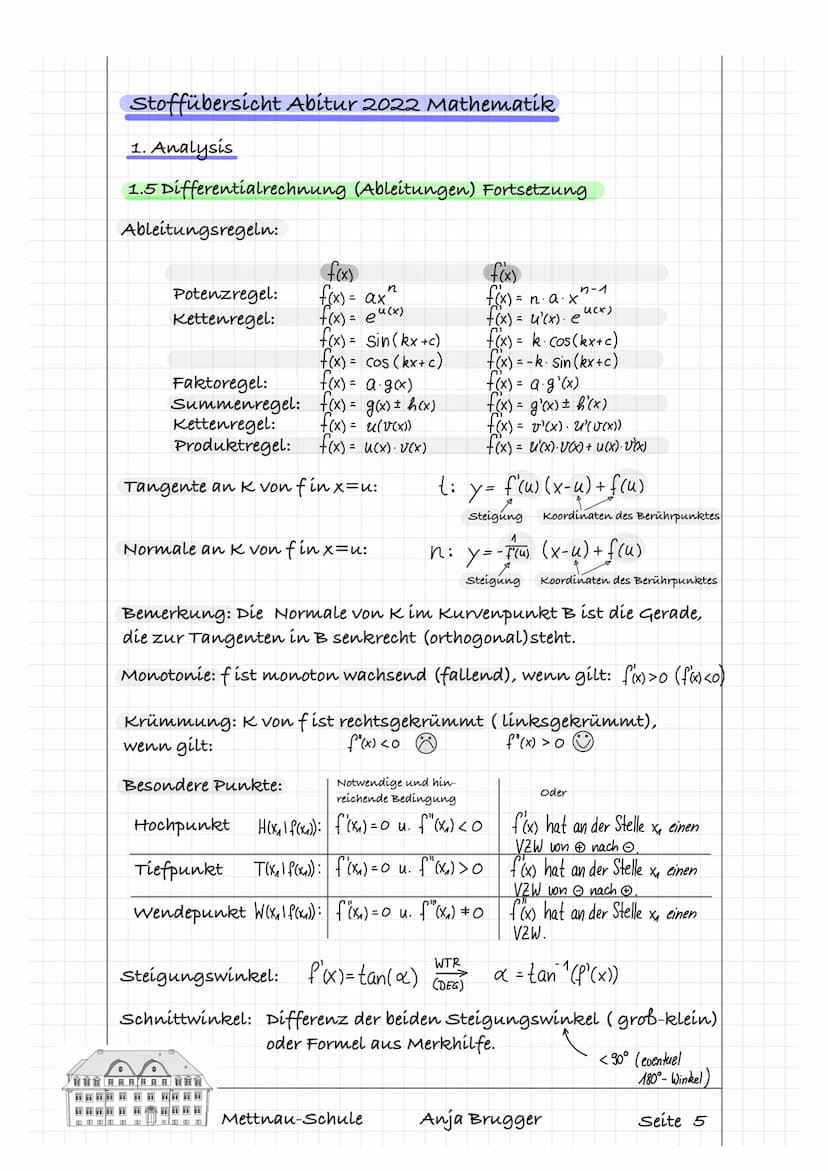 Stoffübersicht Abitur 2022 Mathematik
1. Analysis
1.5 Differentialrechnung (Ableitungen) Fortsetzung
Ableitungsregeln:
f(x) f'(x)
Potenzregel: f(x) = ax^n f'(x) = n·a·x^(n-1)
Kettenregel: f(x) = e^(u(x)) f'(x) = u'(x)·e^(u(x))
f(x) = sin(kx+c) f'(x) = k·cos(kx+c)
f(x) = cos(kx+c) f'(x) = -k·sin(kx+c)
Faktoregel: f(x) = a·g(x) f'(x) = a·g'(x)
Summenregel: f(x) = g(x) ± h(x) f'(x) = g'(x) ± h'(x)
Kettenregel: f(x) = u(v(x)) f'(x) = v'(x)·u'(v(x))
Produktregel: f(x) = u(x)·v(x) f'(x) = u'(x)·v(x) + u(x)·v'(x)
Tangente an K von f in x=u: t: y = f'(u) (x-u) + f(u)
Steigung Koordinaten des Berührpunktes
Normale an K von f in x=u: n: y = -1/f'(u) (x-u) + f(u)
Steigung Koordinaten des Berührpunktes
Bemerkung: Die Normale von K im Kurvenpunkt B ist die Gerade,
die zur Tangenten in B senkrecht (orthogonal) steht.
Monotonie: f ist monoton wachsend (fallend), wenn gilt: f'(x) > 0 (f'(x) < 0)
Krümmung: K von f ist rechtsgekrümmt (linksgekrümmt),
wenn gilt: f''(x) < 0 ☹ f''(x) > 0 ☺
Besondere Punkte: Notwendige und hin-
reichende Bedingung
Oder
Hochpunkt H(x₁|f(x₁)): f'(x₁) = 0 u. f''(x₁) < 0 f'(x) hat an der Stelle x₁ einen
VZW von ⊕ nach ⊖.
Tiefpunkt T(x₁|f(x₁)): f'(x₁) = 0 u. f''(x₁) > 0 f'(x) hat an der Stelle x₁ einen
VZW von ⊖ nach ⊕.
Wendepunkt W(x₁|f(x₁)): f''(x₁) = 0 u. f'''(x₁) ≠ 0 f''(x) hat an der Stelle x₁ einen
VZW.
Steigungswinkel: f'(x) = tan(α) WTR ⟹ (DEG) α = tan⁻¹(f'(x))
Schnittwinkel: Differenz der beiden Steigungswinkel (groß-klein)
oder Formel aus Merkhilfe.
< 90° (eventuel
180° - Winkel)
Mettnau-Schule Anja Brugger Seite 5